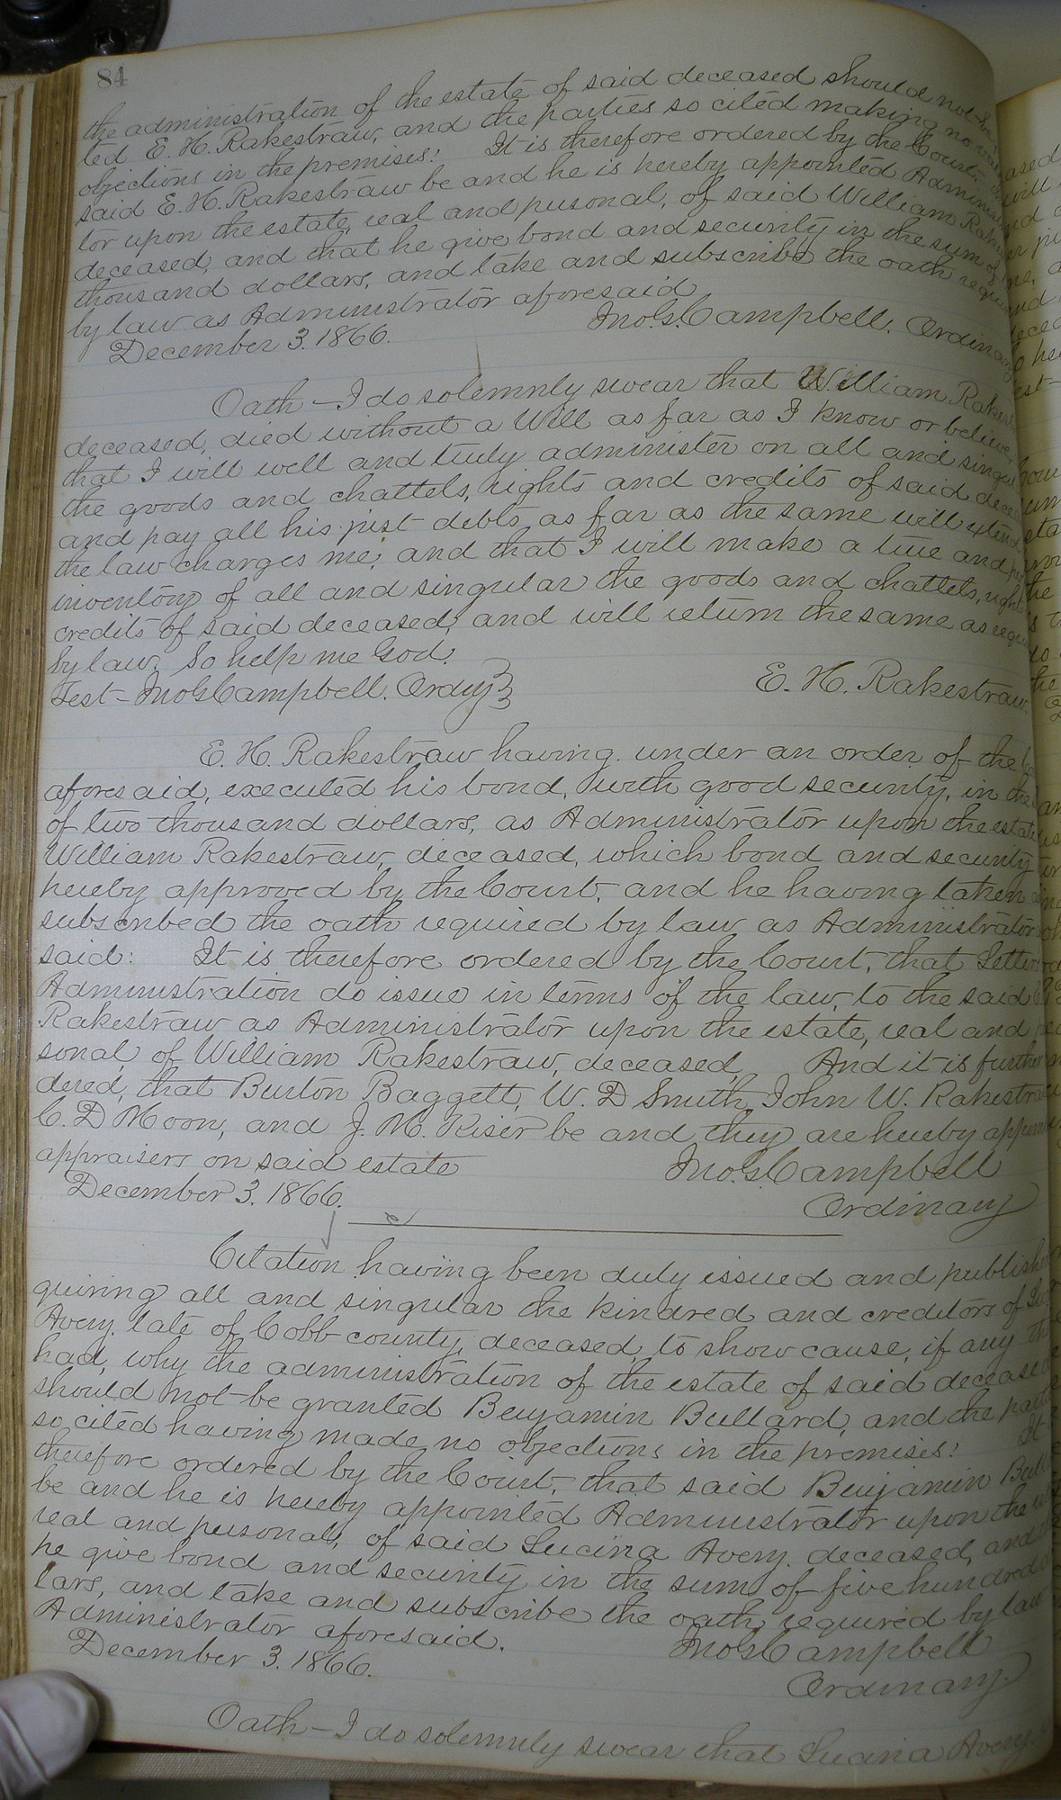 84
the administration of the estate of said deceased should not
ted E. H. Rakestraw, and the parties so cited making no
objections in the premises: It is therefore ordered by the Court,
said E. H. Rakestraw be and he is hereby appointed Administra
tor upon the estate, real and personal, of said William Rakes
deceased, and that he give bond and security in the sum of
thousand dollars, and take and subscribe the oath requir
by law as Administrator aforesaid
December 3. 1866. Jno. G. Campbell, Ordinary
Oath – I do solemnly swear that William Rakes
deceased, died without a Will as far as I know or believe,
that I will well and truly administer on all and singul
the goods and chattels, rights and credits of said decea
and pay all his just debts, as far as the same will extend
the law charges me; and that I will make a true and per
inventory of all and singular the goods and chattels, right
credits of said deceased, and will return the same as requi
by law. So help me God.
Test – Jno G Campbell. Ordry E. H. Rakestraw
E. H. Rakestraw having under an order of the
aforesaid, executed his bond, with good security, in the
of two thousand dollars, as Administrator upon the estate
William Rakestraw, deceased, which bond and security
hereby approved by the Court, and he having taken
subscribed the oath required by law as Administrator
said: It is therefore ordered by the Court, that Letters
Administration do issue in terms of the law, to the said
Rakestraw as Administrator upon the estate, real and
sonal, of William Rakestraw, deceased, And it is further
dered, that Burton Baggett, W. D Smith, John W. Rakestra
C. D Moon, and J. M. Kiser be and they are hereby appoin
appraisers on said estate Jno. G. Campbell
December 3. 1866. Ordinary
Citation having been duly issued and publish
quiring all and singular the kindred and creditors of
Avery late of Cobb county, deceased, to show cause, if any
had, why the administration of the estate of said deceased
should not be granted Benjamin Bullard, and the parti
so cited having made no objections in the premises: It
therefore ordered by the Court, that said Benjamin Bull
be and he is hereby appointed Administrator upon the
real and personal, of said Lucina Avery, deceased, and
he give bond and security in the sum of five hundred
lars, and take and subscribe the oath required by law
Administrator aforesaid. Jno G Campbell
December 3. 1866. Ordinary.
Oath – I do solemnly swear that Lucina Avery